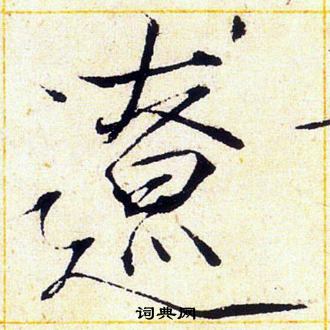 遼
词典网